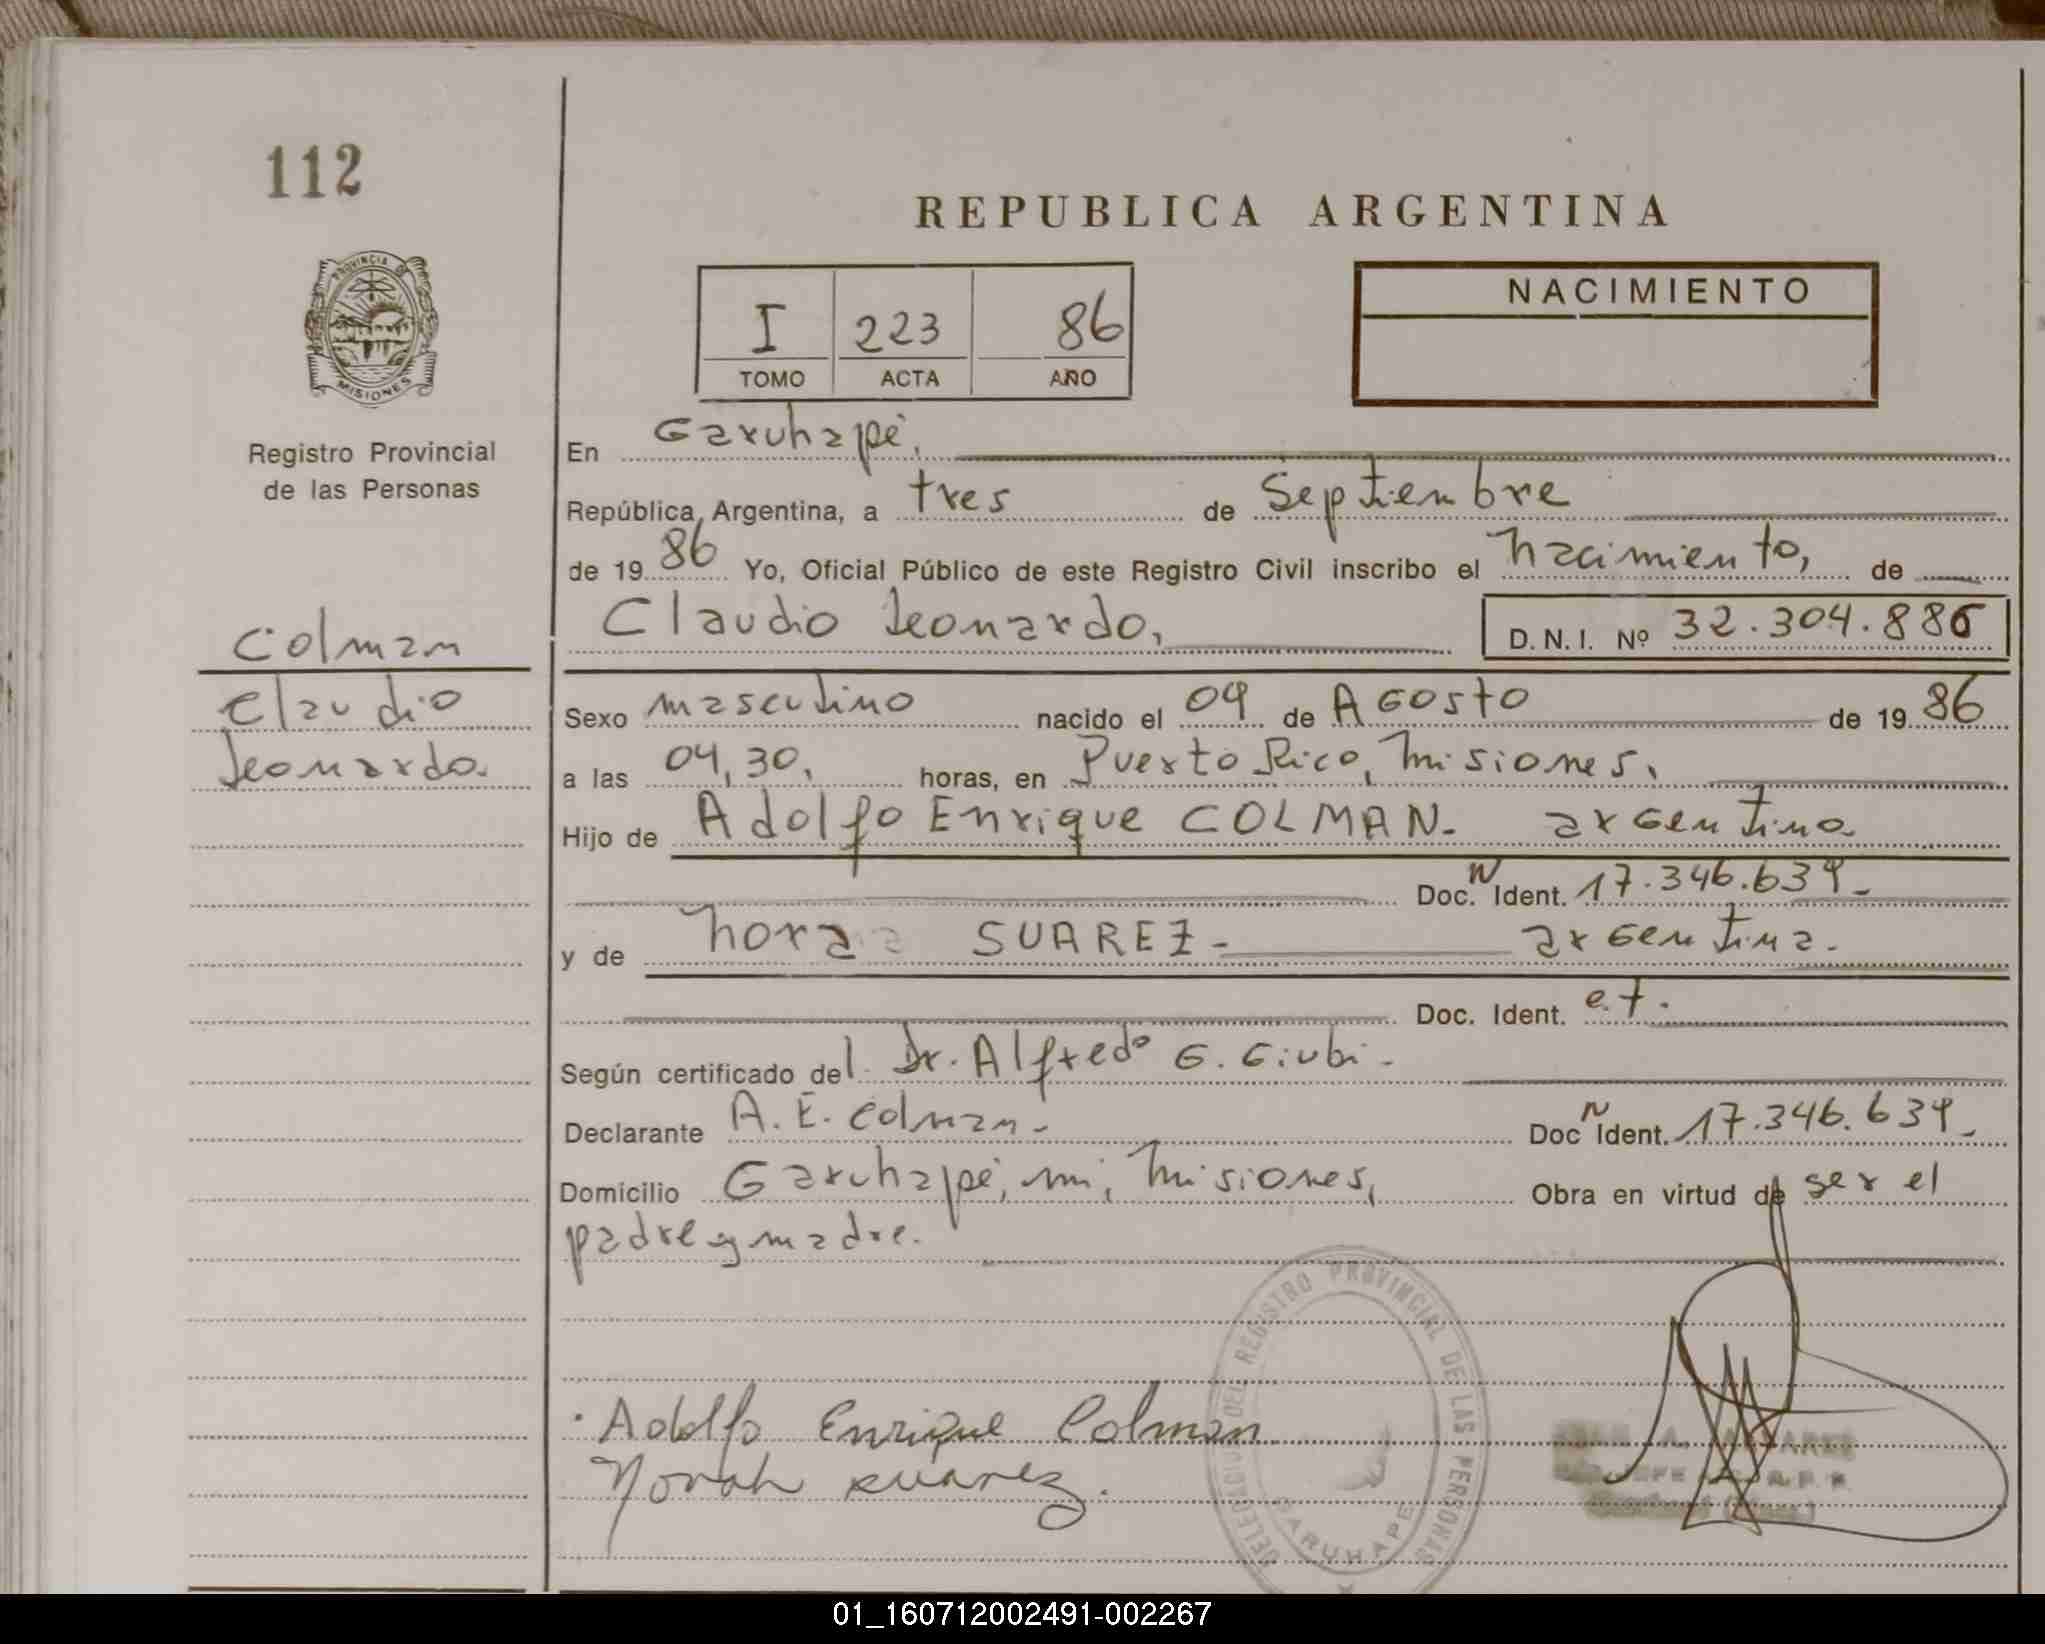 112
REPUBLICA ARGENTINA
PROVINCIA DE
MISIONES
NACIMIENTO
I 223 86
TOMO ACTA AÑO
Registro Provincial
de las Personas
En Garuhapé,
República Argentina, a tres de Septiembre
de 1986 Yo, Oficial Público de este Registro Civil inscribo el nacimiento, de
Claudio Leonardo, D.N.I. Nº 32.304.886
Colman
Claudio
Leonardo.
Sexo masculino nacido el 09 de Agosto de 1986
a las 04,30, horas, en Puerto Rico, Misiones,
Hijo de Adolfo Enrique COLMAN. argentino
Doc. N Ident. 17.346.639-
y de Nora SUAREZ- argentina.
Doc. Ident. e.t.
Según certificado del Dr. Alfredo G. Giubi-
Declarante A. E. Colman- Doc N Ident. 17.346.639-
Domicilio Garuhapé, mi, Misiones, Obra en virtud de ser el
padre y madre.
Adolfo Enrique Colman
Norah suarez.
DELEGACION DEL REGISTRO PROVINCIAL DE LAS PERSONAS
GARUHAPE
01_160712002491-002267